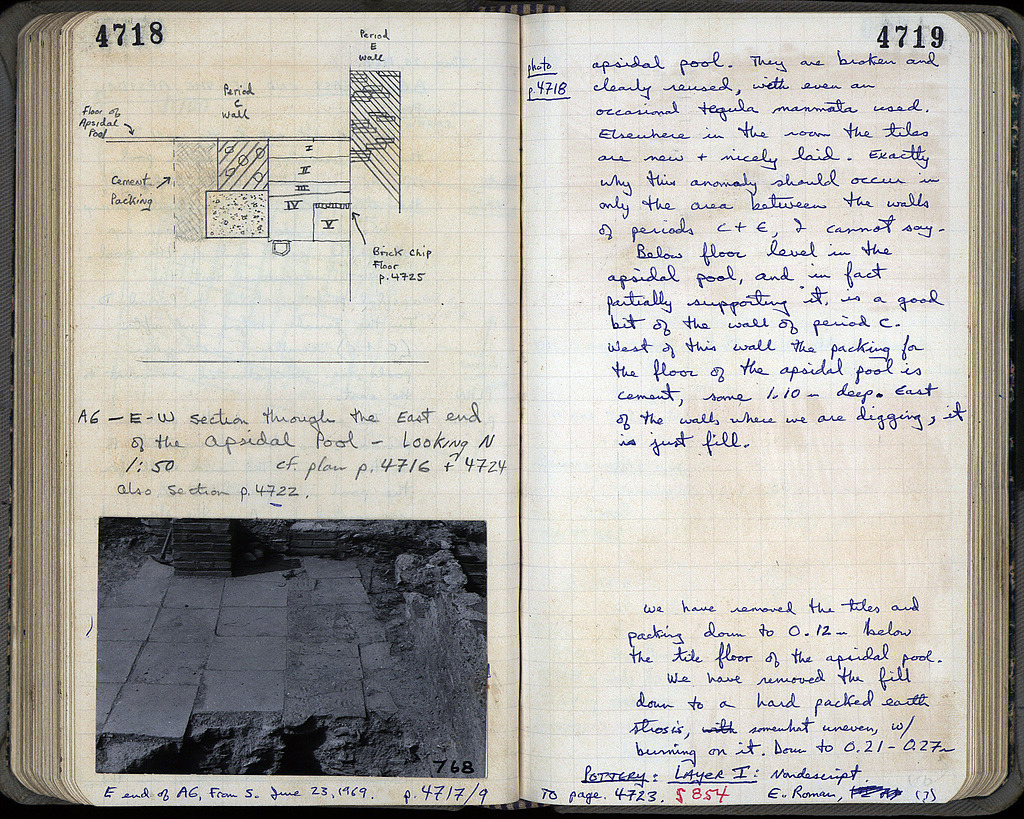 4718
Period
E
Wall
Period
C
Wall
Floor of
Apsidal
Pool
Cement
Packing
I
II
III
IV
V
Brick Chip
Floor
p. 4725
A6 — E-W section through the East end
of the Apsidal Pool — Looking N
1:50 cf. plan p. 4716 + 4724
also section p. 4722.
768
E end of A6, From S. June 23, 1969. p. 4717/9
4719
photo
p. 4718
apsidal pool. They are broken and
clearly reused, with even an
occasional tegula mammata used.
Elsewhere in the room the tiles
are new + nicely laid. Exactly
why this anomaly should occur in
only the area between the walls
of periods C + E, I cannot say.
Below floor level in the
apsidal pool, and in fact
partially supporting it, is a good
bit of the wall of period C.
West of this wall the packing for
the floor of the apsidal pool is
cement, some 1.10 m deep. East
of the walls where we are digging, it
is just fill.
We have removed the tiles and
packing down to 0.12 m below
the tile floor of the apsidal pool.
We have removed the fill
down to a hard packed earth
strosis, with somewhat uneven, w/
burning on it. Down to 0.21 - 0.27 m
Pottery: Layer I: Nondescript.
To page 4723. § 854 E. Roman, (?)